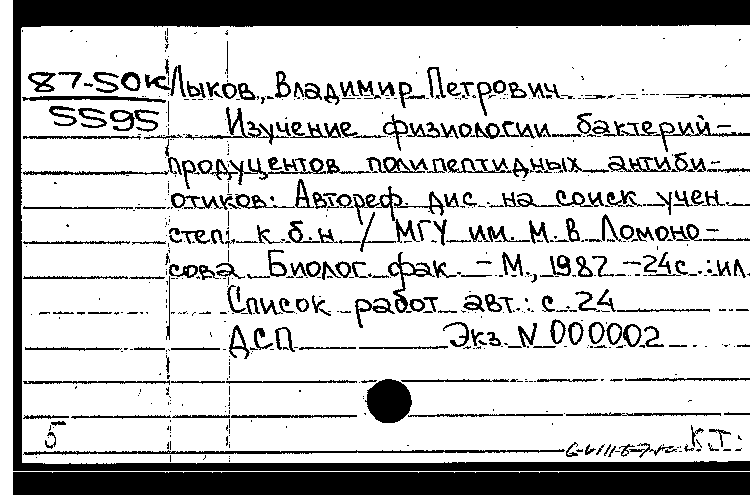 87-50к Лыков, Владимир Петрович
5595 Изучение физиологии бактерий-
продуцентов полипептидных антиби-
отиков: Автореф. дис. на соиск учен.
степ. к.б.н / МГУ им. М.В. Ломоно-
сова. Биолог. фак. - М., 1987 - 24с.: ил.
Список работ авт.: с. 24
ДСП Экз. N 000002
5 К.Т.